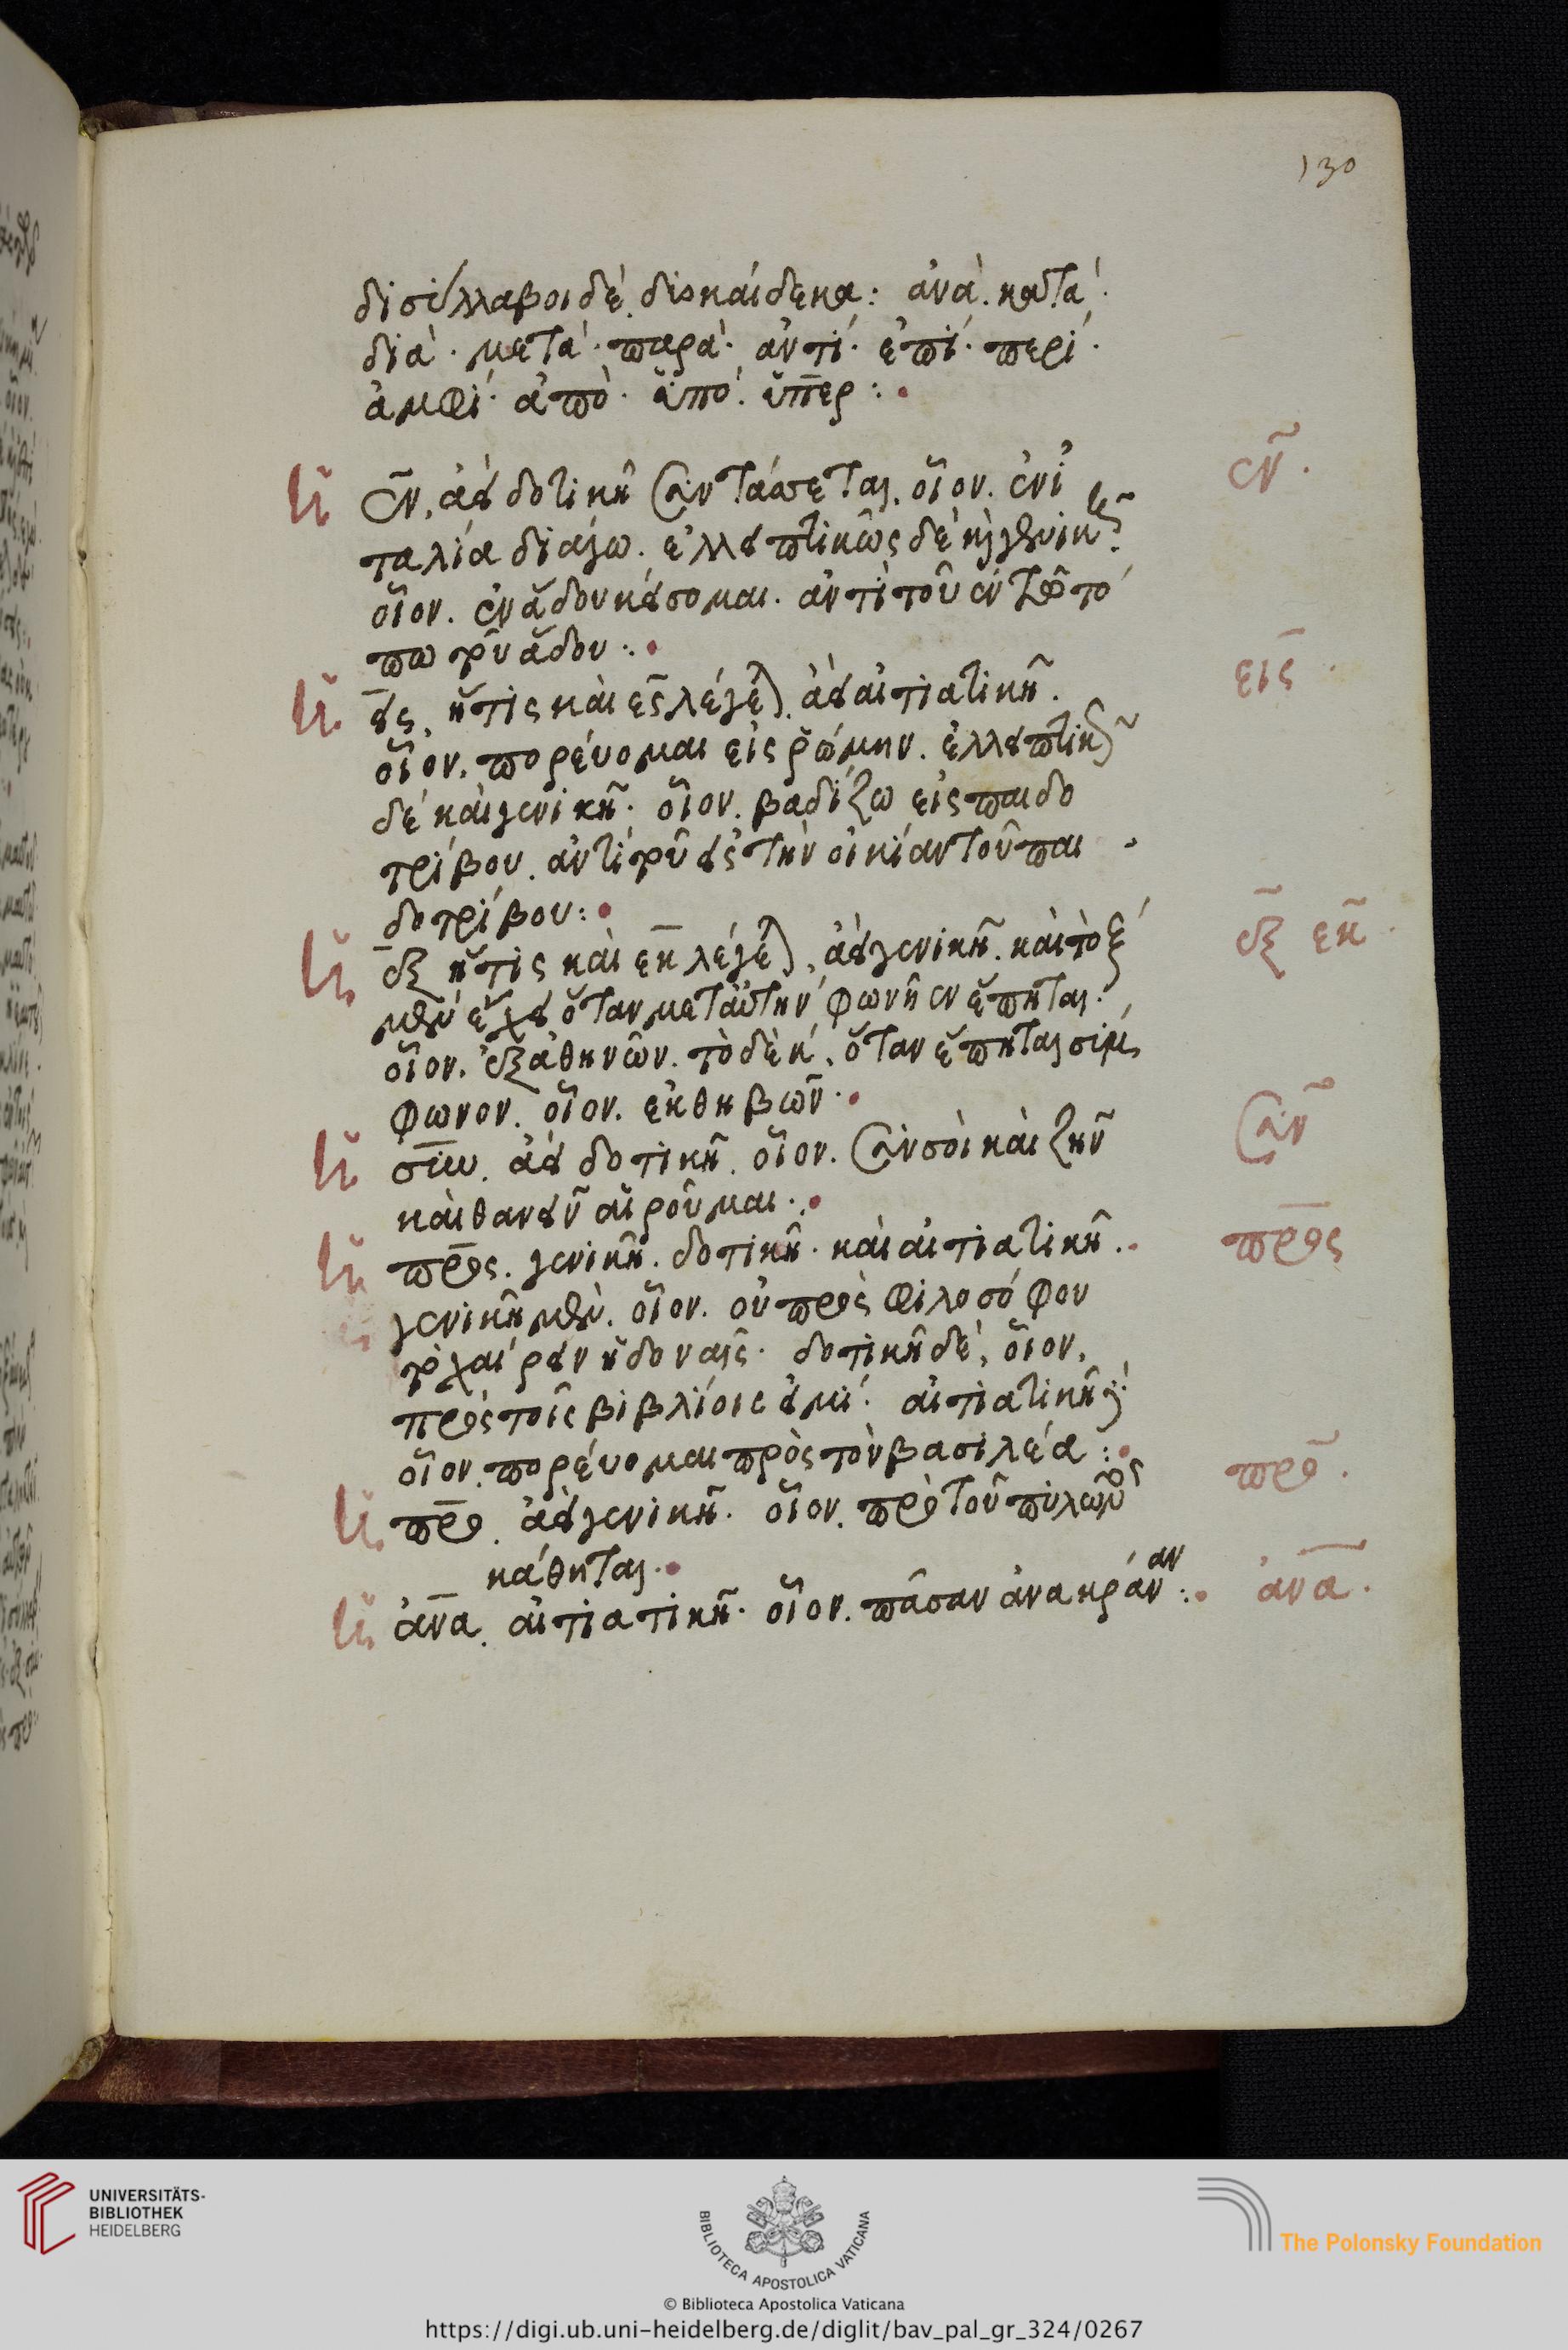 130
δισύλλαβοι δὲ διοκαίδεκα: ἀνὰ. κατὰ.
διὰ. μετὰ. παρὰ. ἀντί. ἐπί. περί.
ἀμφί. ἀπὸ. ὑπό. ὑπερ:.
ἐν. ἀεὶ δοτικῇ συντάσσεται. οἷον. ἐν ἰ
ταλία διάγω. ἐλλειπτικῶς δὲ καὶ γενικῇ.
οἷον. ἐν ᾅδου κείσομαι. ἀντὶ τοῦ ἐν τῷ τό
πω τοῦ ᾅδου:.
εἰς. ἥτις καὶ ες λέγεται. ἀεὶ αἰτιατικῇ.
οἷον. πορεύομαι εἰς ῥώμην. ἐλλειπτικῶς
δὲ καὶ γενικῇ. οἷον. βαδίζω εἰς παιδο
τρίβου. ἀντί τοῦ εἰς τὴν οἰκίαν τοῦ παι
δοτρίβου:.
ἐξ ἥτις καὶ εκ λέγεται. ἀεὶ γενικῇ. καὶ τὸ ξ
μὲν ἔχει ὅταν μετ' αὐτὴν φωνῆεν ἕπηται.
οἷον. ἐξ ἀθηνῶν. τὸ δὲ κ. ὅταν ἕπηται σύμ
φωνον. οἷον. ἐκ θηβῶν.
σὺν. ἀεὶ δοτικῇ. οἷον. σὺν σοὶ καὶ ζῆν
καὶ θανεῖν αἱροῦμαι.
προς. γενικῇ. δοτικῇ. καὶ αἰτιατικῇ.
γενικῇ μὲν. οἷον. οὐ πρὸς φιλοσόφου
τὸ χαίρειν ἡδοναῖς. δοτικῇ δὲ. οἷον.
πρὸς τοῖς βιβλίοις εἰμί. αἰτιατικῇ δὲ.
οἷον. πορεύομαι πρὸς τὸν βασιλέα:.
προ. ἀεὶ γενικῇ. οἷον. πρὸ τοῦ πυλῶνος
κάθηται.
ἀνα. αἰτιατικῇ. οἷον. πᾶσαν ἀνα κράναν:.
ἐν.
εις.
ἐξ εκ.
σὺν
προς
προ.
ἀνα.
UNIVERSITÄTS-
BIBLIOTHEK
HEIDELBERG
BIBLIOTECA APOSTOLICA VATICANA
© Biblioteca Apostolica Vaticana
The Polonsky Foundation
https://digi.ub.uni-heidelberg.de/diglit/bav_pal_gr_324/0267